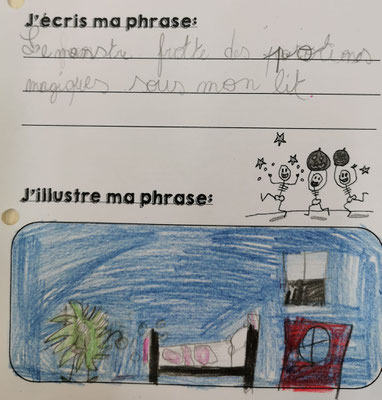 J'écris ma phrase:
Le monstre frotte des potions
magiques sous mon lit.
J'illustre ma phrase: